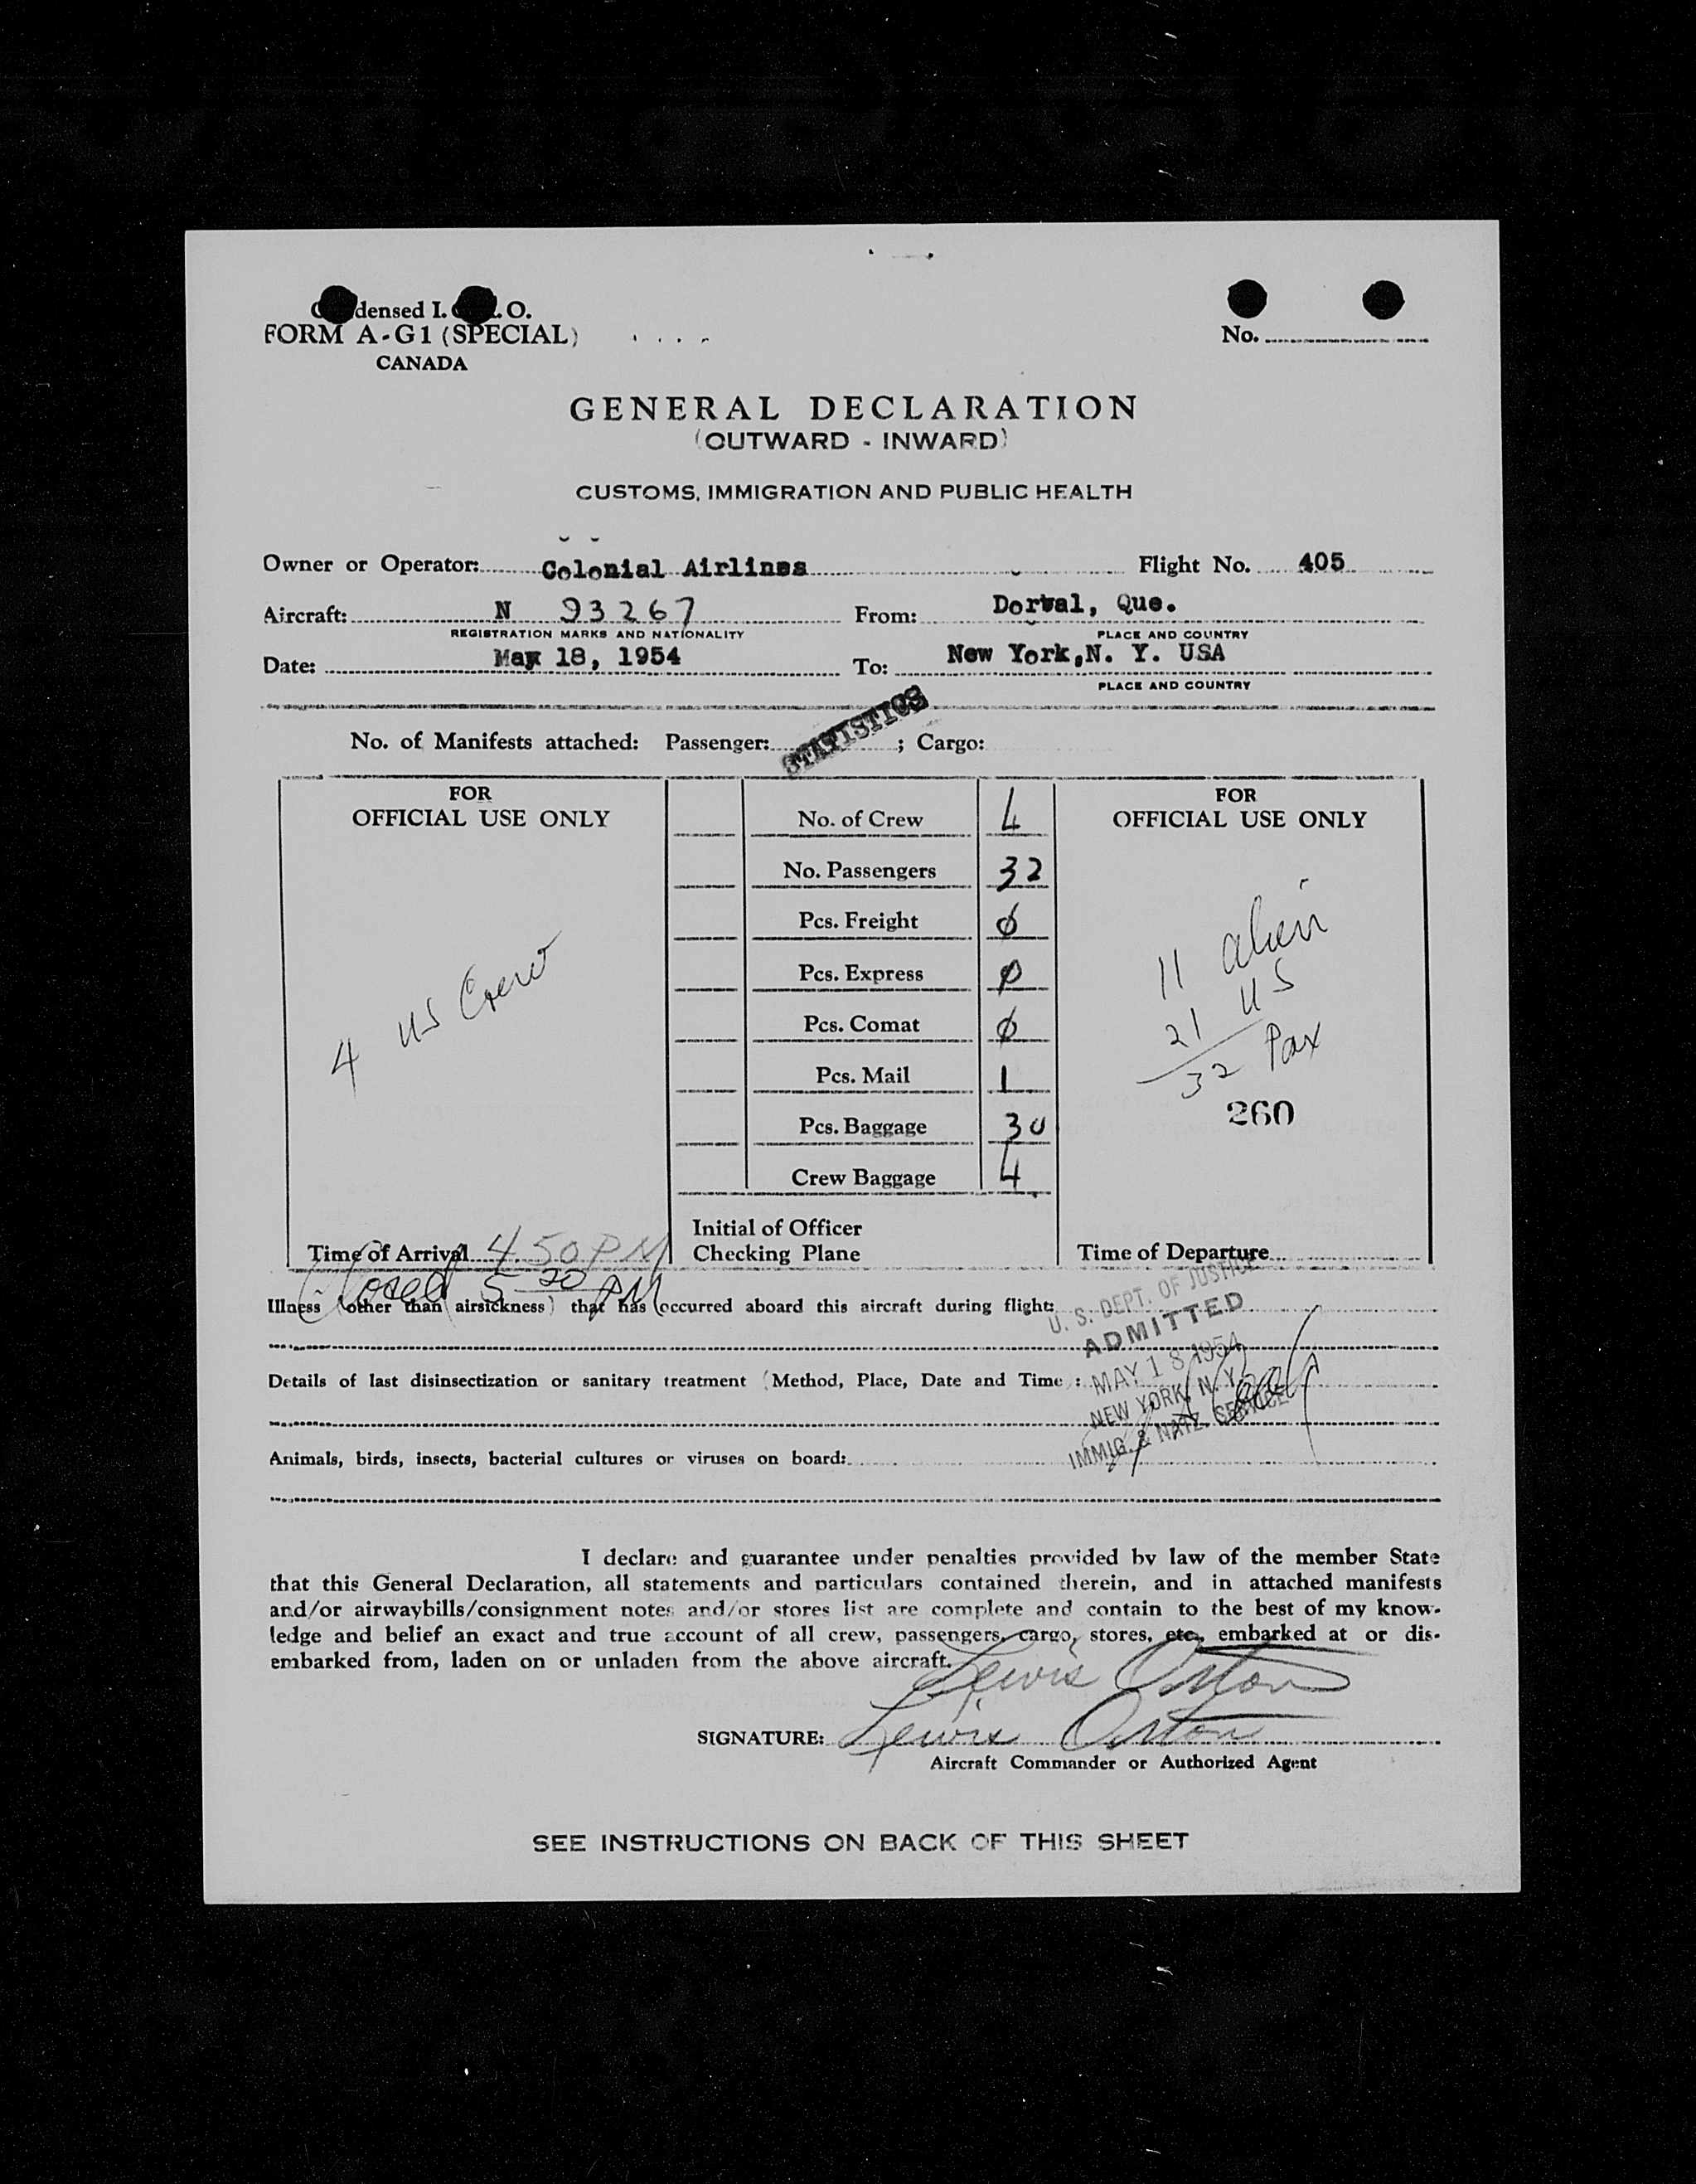 densed I. O.
FORM A-G1 (SPECIAL)
CANADA
No.
GENERAL DECLARATION
(OUTWARD - INWARD)
CUSTOMS, IMMIGRATION AND PUBLIC HEALTH
Owner or Operator: Colonial Airlines Flight No. 405
Aircraft: N 93267 From: Dorval, Que.
REGISTRATION MARKS AND NATIONALITY PLACE AND COUNTRY
Date: May 18, 1954 To: New York, N. Y. USA
PLACE AND COUNTRY
STATISTICS
No. of Manifests attached: Passenger: ; Cargo:
FOR
OFFICIAL USE ONLY
4 US Crew
Time of Arrival 4.50 PM
Closed 5 20 PM
No. of Crew 4
No. Passengers 32
Pcs. Freight 0
Pcs. Express 0
Pcs. Comat 0
Pcs. Mail 1
Pcs. Baggage 30
Crew Baggage 4
Initial of Officer
Checking Plane
FOR
OFFICIAL USE ONLY
11 alien
21 US
32 Pax
260
Time of Departure
Illness (other than airsickness) that has occurred aboard this aircraft during flight:
U. S. DEPT. OF JUSTICE
ADMITTED
MAY 18 1954
NEW YORK, N. Y.
IMMIG. & NATZ. SERVICE
Details of last disinsectization or sanitary treatment (Method, Place, Date and Time):
Animals, birds, insects, bacterial cultures or viruses on board:
I declare and guarantee under penalties provided by law of the member State
that this General Declaration, all statements and particulars contained therein, and in attached manifests
and/or airwaybills/consignment notes and/or stores list are complete and contain to the best of my know-
ledge and belief an exact and true account of all crew, passengers, cargo, stores, etc., embarked at or dis-
embarked from, laden on or unladen from the above aircraft.
Lewis Oston
SIGNATURE: Lewis Oston
Aircraft Commander or Authorized Agent
SEE INSTRUCTIONS ON BACK OF THIS SHEET